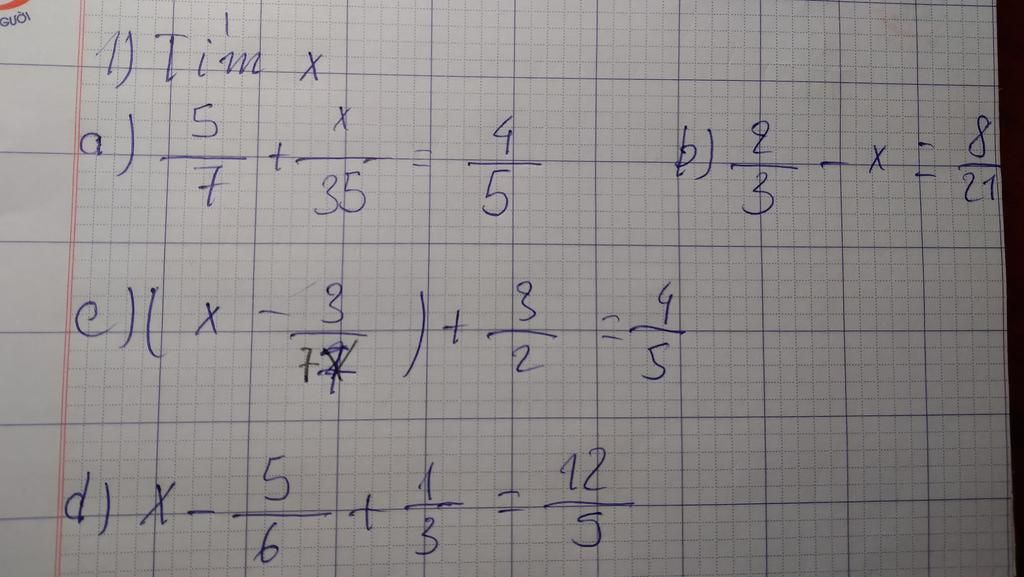 GƯỜI
1) Tìm x
a) 5/7 + x/35 = 4/5 b) 2/3 - x = 8/21
c) ( x - 3/7 ) + 3/2 = 4/5
d) x - 5/6 + 1/3 = 12/5